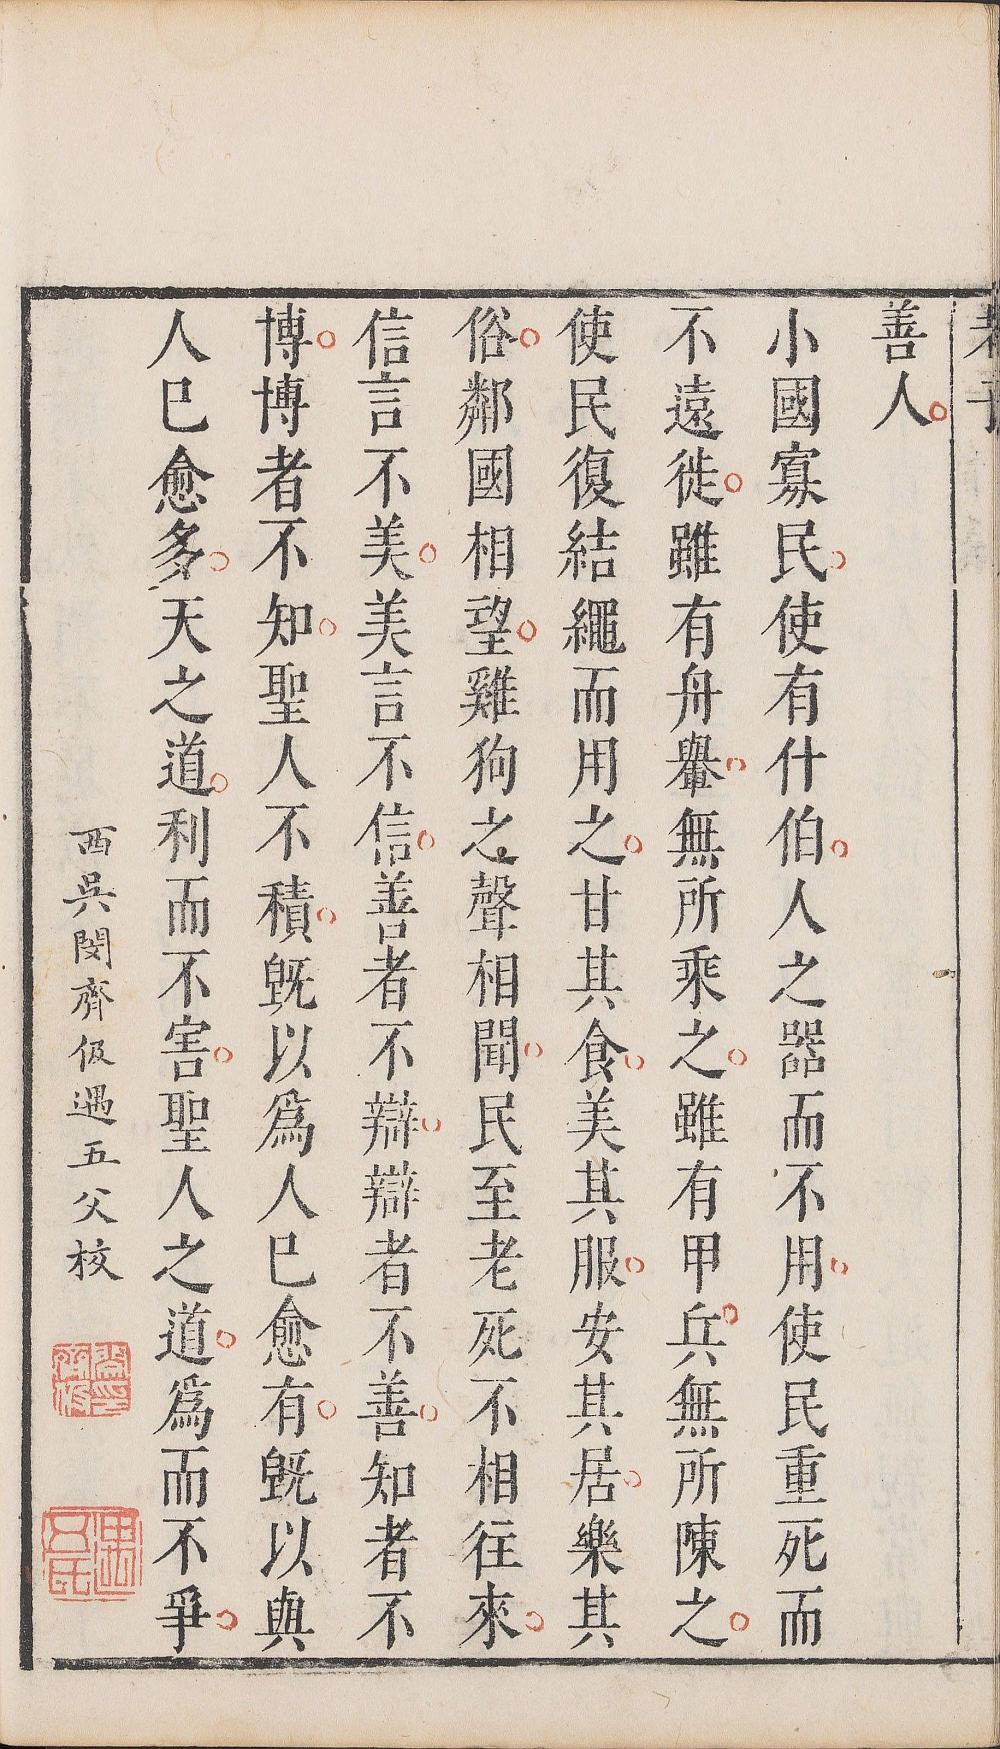 老子
善人
小國寡民使有什伯人之器而不用使民重死而
不遠徙雖有舟轝無所乘之雖有甲兵無所陳之
使民復結繩而用之甘其食美其服安其居樂其
俗鄰國相望雞狗之聲相聞民至老死不相往來
信言不美美言不信善者不辯辯者不善知者不
博博者不知聖人不積旣以爲人已愈有旣以與
人已愈多天之道利而不害聖人之道爲而不爭
西吳閔齊伋遇五父校